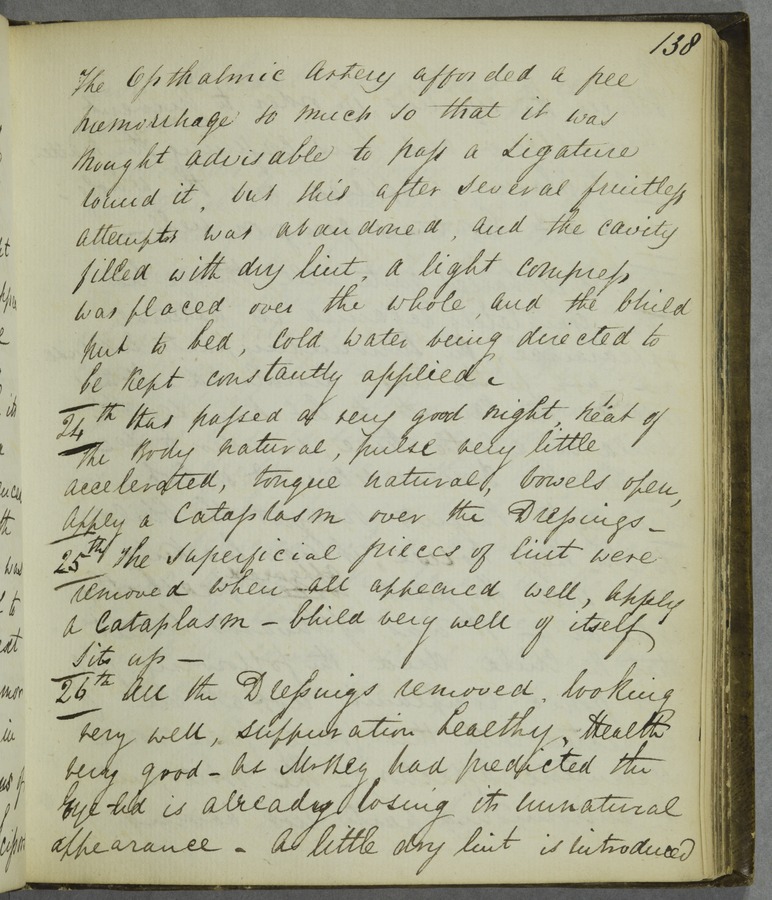 138
The Opthalmic Artery afforded a free
hemorrhage so much so that it was
thought advisable to pass a Ligature
round it, but this after several fruitless
attempts was abandoned, and the cavity
filled with dry lint, a light compress
was placed over the whole, and the Child
put to bed, Cold water being directed to
be kept constantly applied.
24th Has passed a very good night, heat of
the Body natural, pulse very little
accelerated, tongue natural, bowels open,
apply a Cataplasm over the Dressings -
25th The superficial pieces of lint were
removed when all appeared well, apply
a Cataplasm - Child very well of itself
Sits up -
26th All the Dressings removed, looking
very well, suppuration healthy, Health
very good - As Mr Key had predicted the
Eye-lid is already losing its unnatural
appearance - A little dry lint is introduced